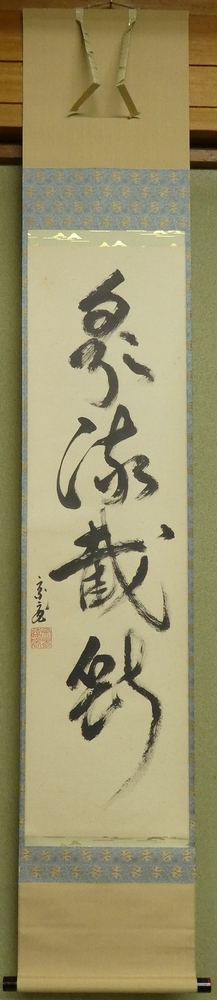 衆流截断